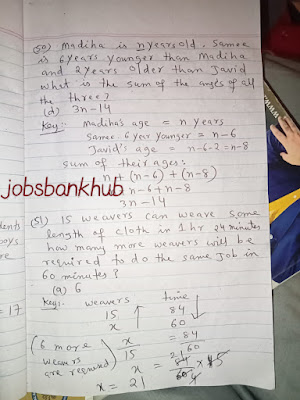 50) Madiha is n years old. Samee
is 6 years younger than Madiha
and 2 years older than Javid
what is the sum of the angels of all
the three?
(d) 3n-14
Key:- Madiha's age = n years
Samee 6 year younger = n-6
Javid's age = n-6-2 = n-8
sum of their ages:
n + (n-6) + (n-8)
n-6+n-8
3n-14
jobsbankhub
(51) 15 weavers can weave some
length of cloth in 1 hr 24 minutes
how many more weavers will be
required to do the same job in
60 minutes?
(a) 6
Key:- weavers time
15 ↑ 84 ↓
x 60
x/15 = 84/60
(6 more
weavers
are required)
x = 21 84/60 4 × 15
x = 21
dents
boys
re
= 17